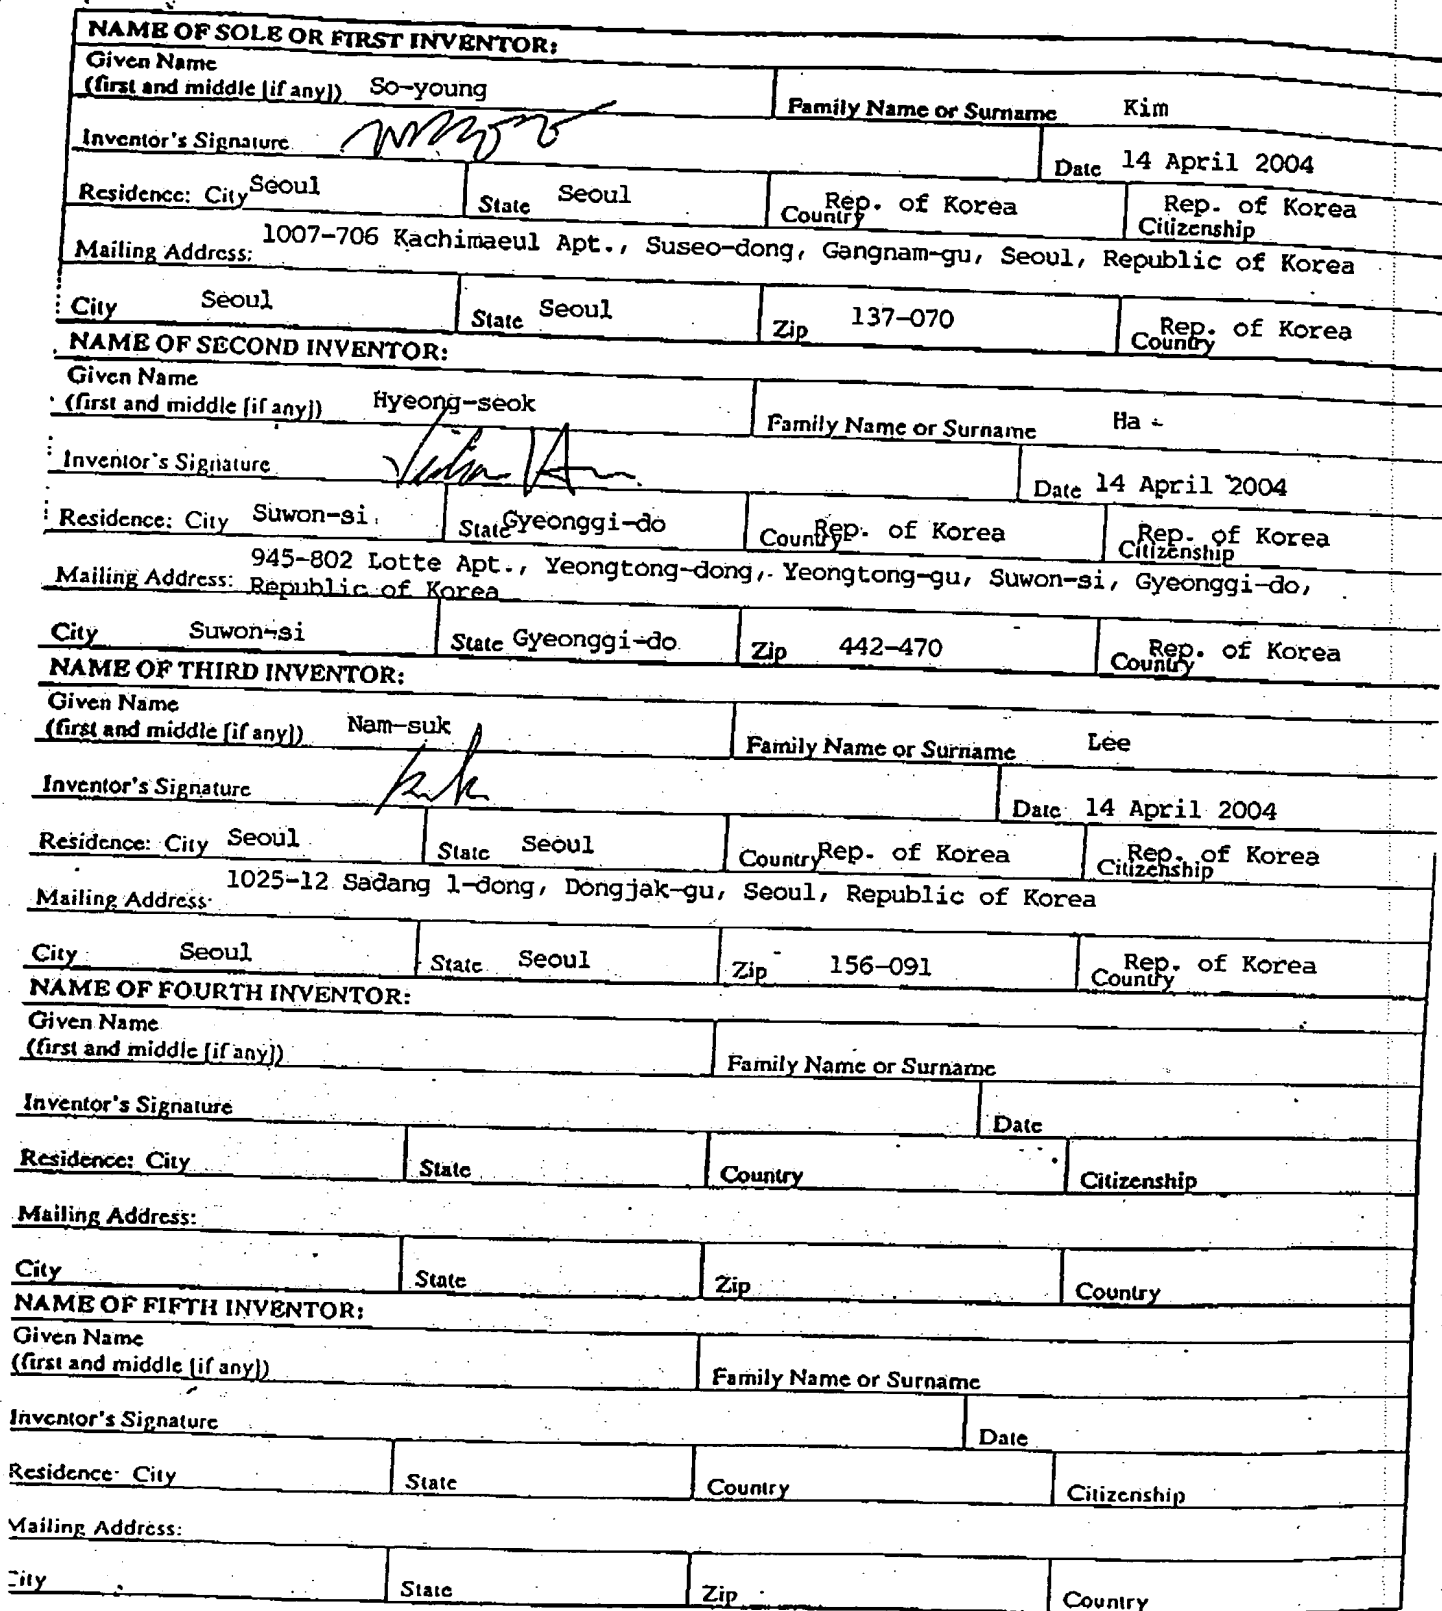 NAME OF SOLE OR FIRST INVENTOR:
Given Name
(first and middle [if any]) So-young Family Name or Surname Kim
Inventor's Signature Date 14 April 2004
Residence: City Seoul State Seoul Country Rep. of Korea Rep. of Korea Citizenship
Mailing Address: 1007-706 Kachimaeul Apt., Suseo-dong, Gangnam-gu, Seoul, Republic of Korea
City Seoul State Seoul Zip 137-070 Country Rep. of Korea
NAME OF SECOND INVENTOR:
Given Name
(first and middle [if any]) Hyeong-seok Family Name or Surname Ha
Inventor's Signature Date 14 April 2004
Residence: City Suwon-si State Gyeonggi-do Country Rep. of Korea Rep. of Korea Citizenship
945-802 Lotte Apt., Yeongtong-dong, Yeongtong-gu, Suwon-si, Gyeonggi-do,
Mailing Address: Republic of Korea
City Suwon-si State Gyeonggi-do Zip 442-470 Country Rep. of Korea
NAME OF THIRD INVENTOR:
Given Name
(first and middle [if any]) Nam-suk Family Name or Surname Lee
Inventor's Signature Date 14 April 2004
Residence: City Seoul State Seoul Country Rep. of Korea Rep. of Korea Citizenship
Mailing Address 1025-12 Sadang 1-dong, Dongjak-gu, Seoul, Republic of Korea
City Seoul State Seoul Zip 156-091 Country Rep. of Korea
NAME OF FOURTH INVENTOR:
Given Name
(first and middle [if any]) Family Name or Surname
Inventor's Signature Date
Residence: City State Country Citizenship
Mailing Address:
City State Zip Country
NAME OF FIFTH INVENTOR:
Given Name
(first and middle [if any]) Family Name or Surname
Inventor's Signature Date
Residence City State Country Citizenship
Mailing Address:
City State Zip Country